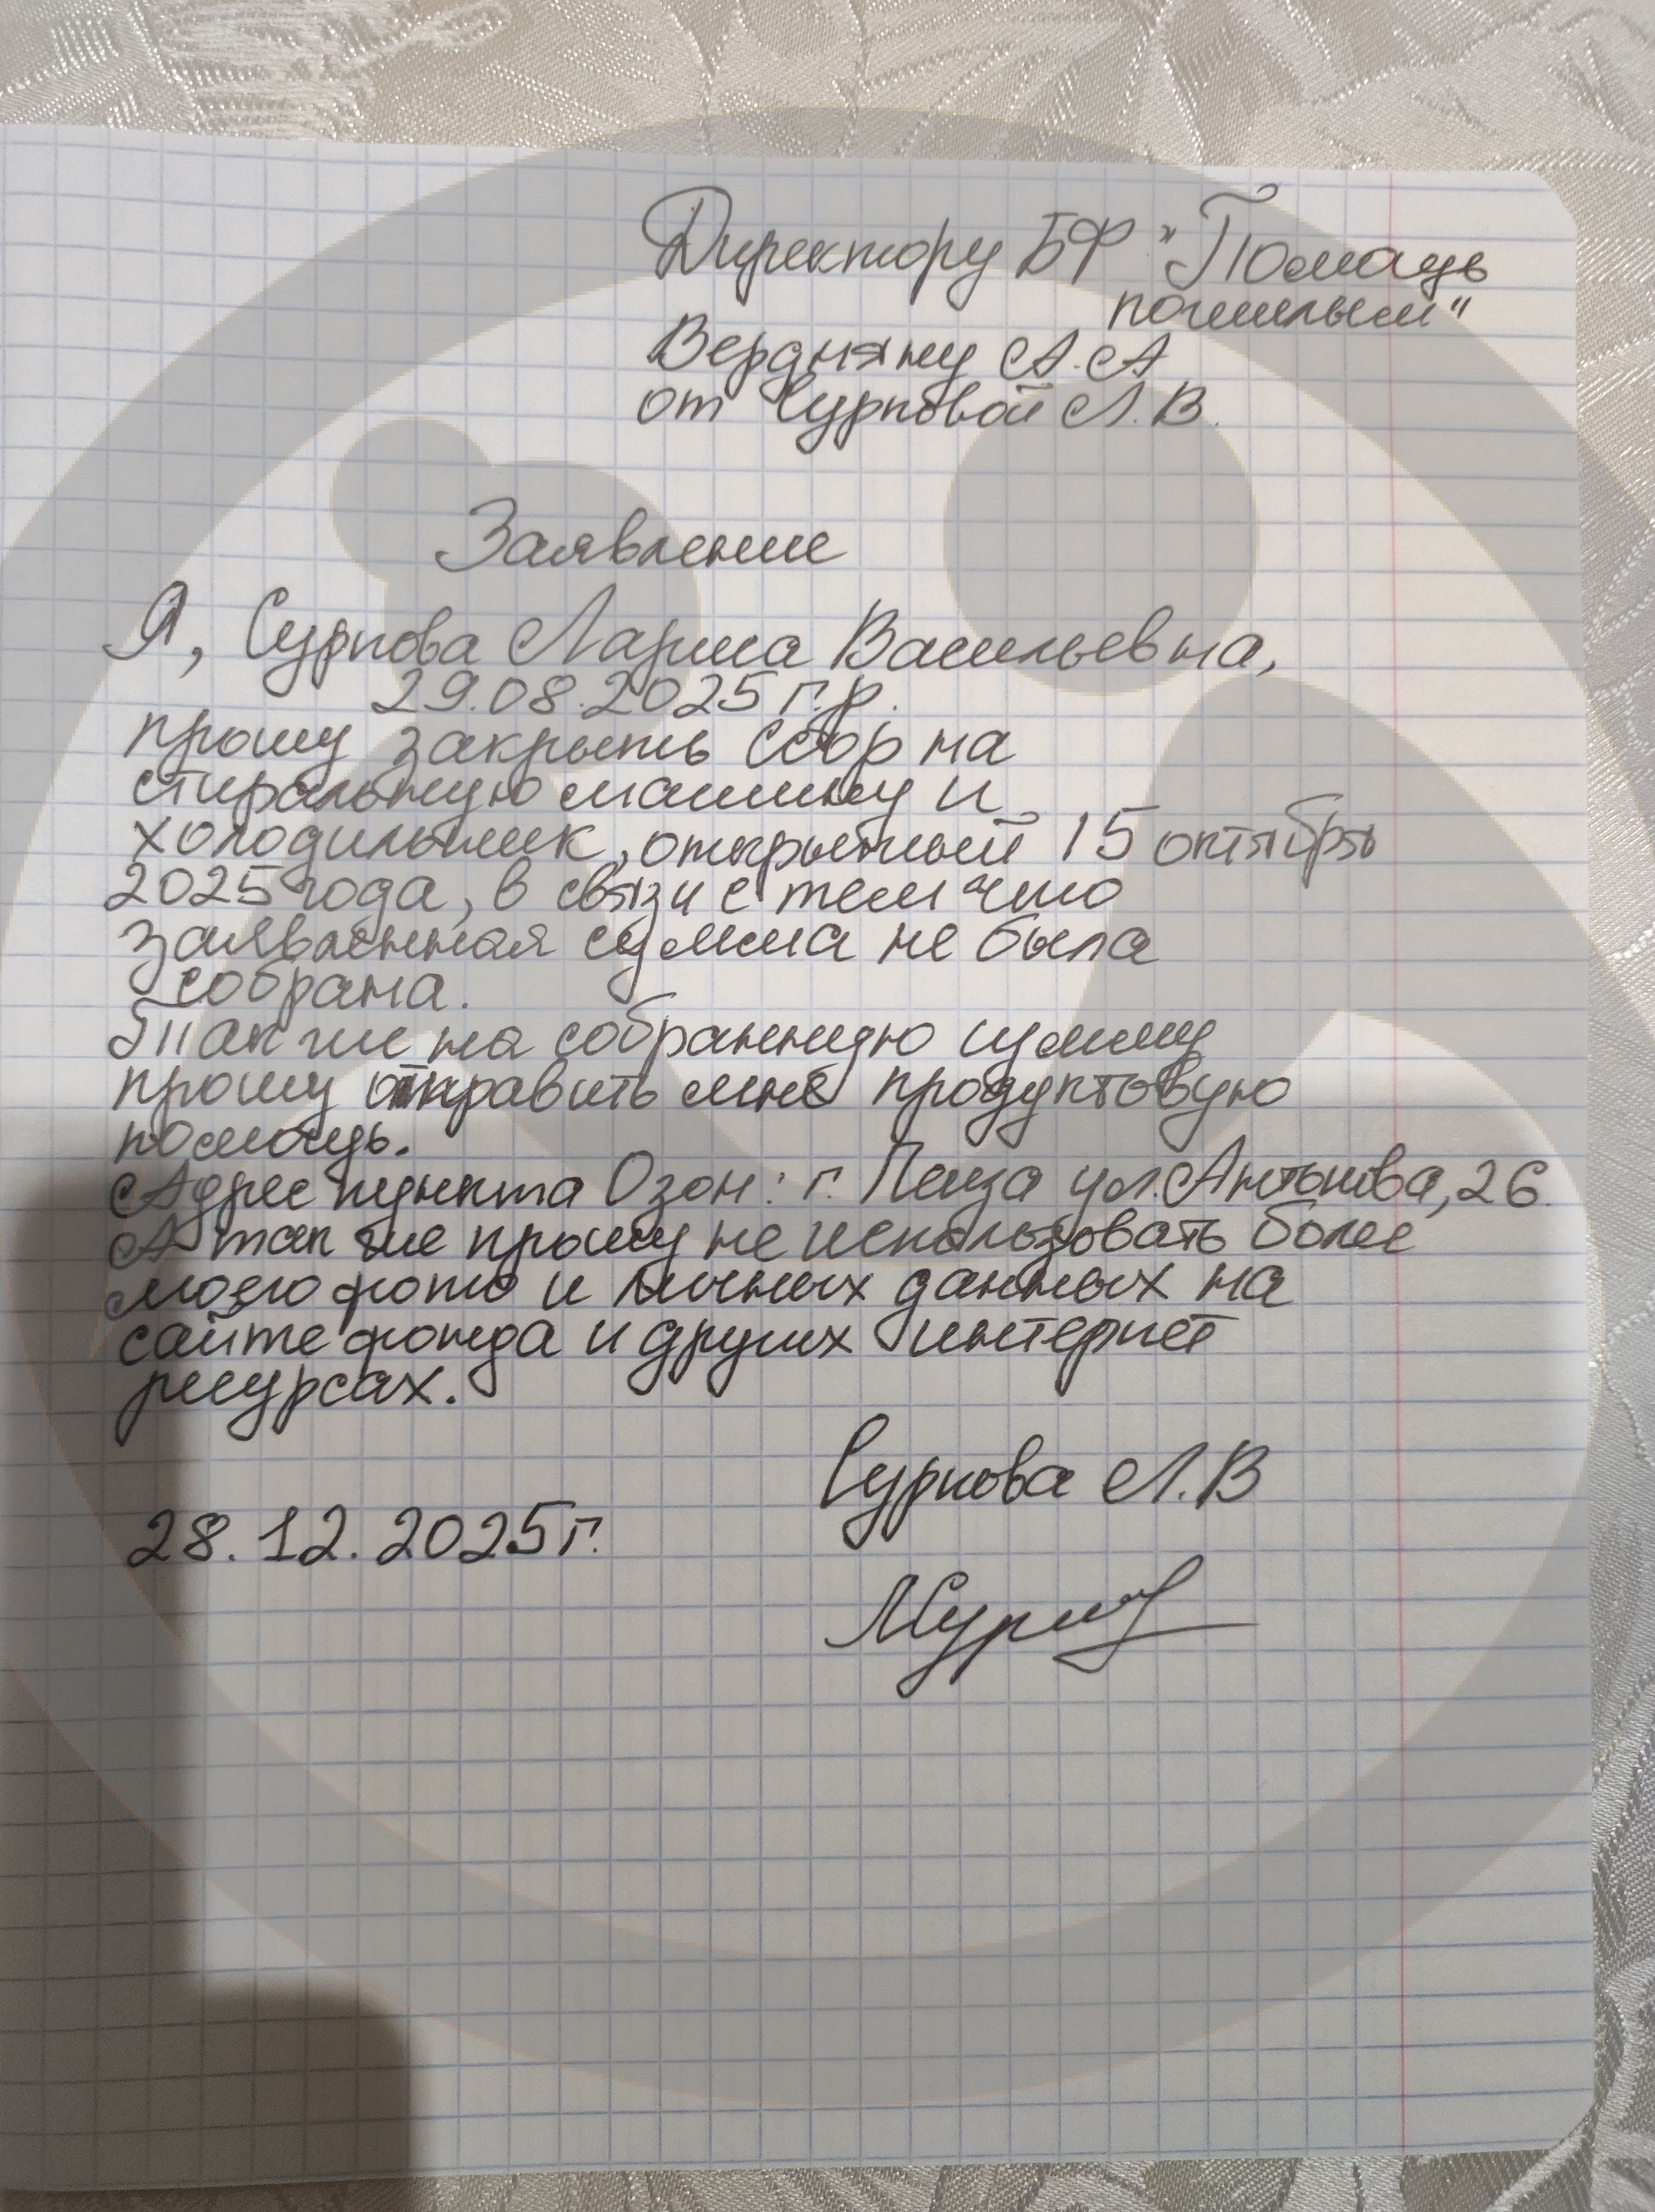 Директору БФ "Помощь
пожилым"
Вердияну А.А
от Сурковой Л.В.
Заявление
Я, Суркова Лариса Васильевна,
29.08.2025 г.р.
прошу закрыть сбор на
стиральную машину и
холодильник, открытый 15 октября
2025 года, в связи с тем что
заявленная сумма не была
собрана.
Так же на собранную сумму
прошу отправить мне продуктовую
помощь.
Адрес пункта Озон: г. Пенза ул. Антонова, 26.
А так же прошу не использовать более
моего фото и личных данных на
сайте фонда и других интернет
ресурсах.
Суркова Л.В
28.12.2025 г.